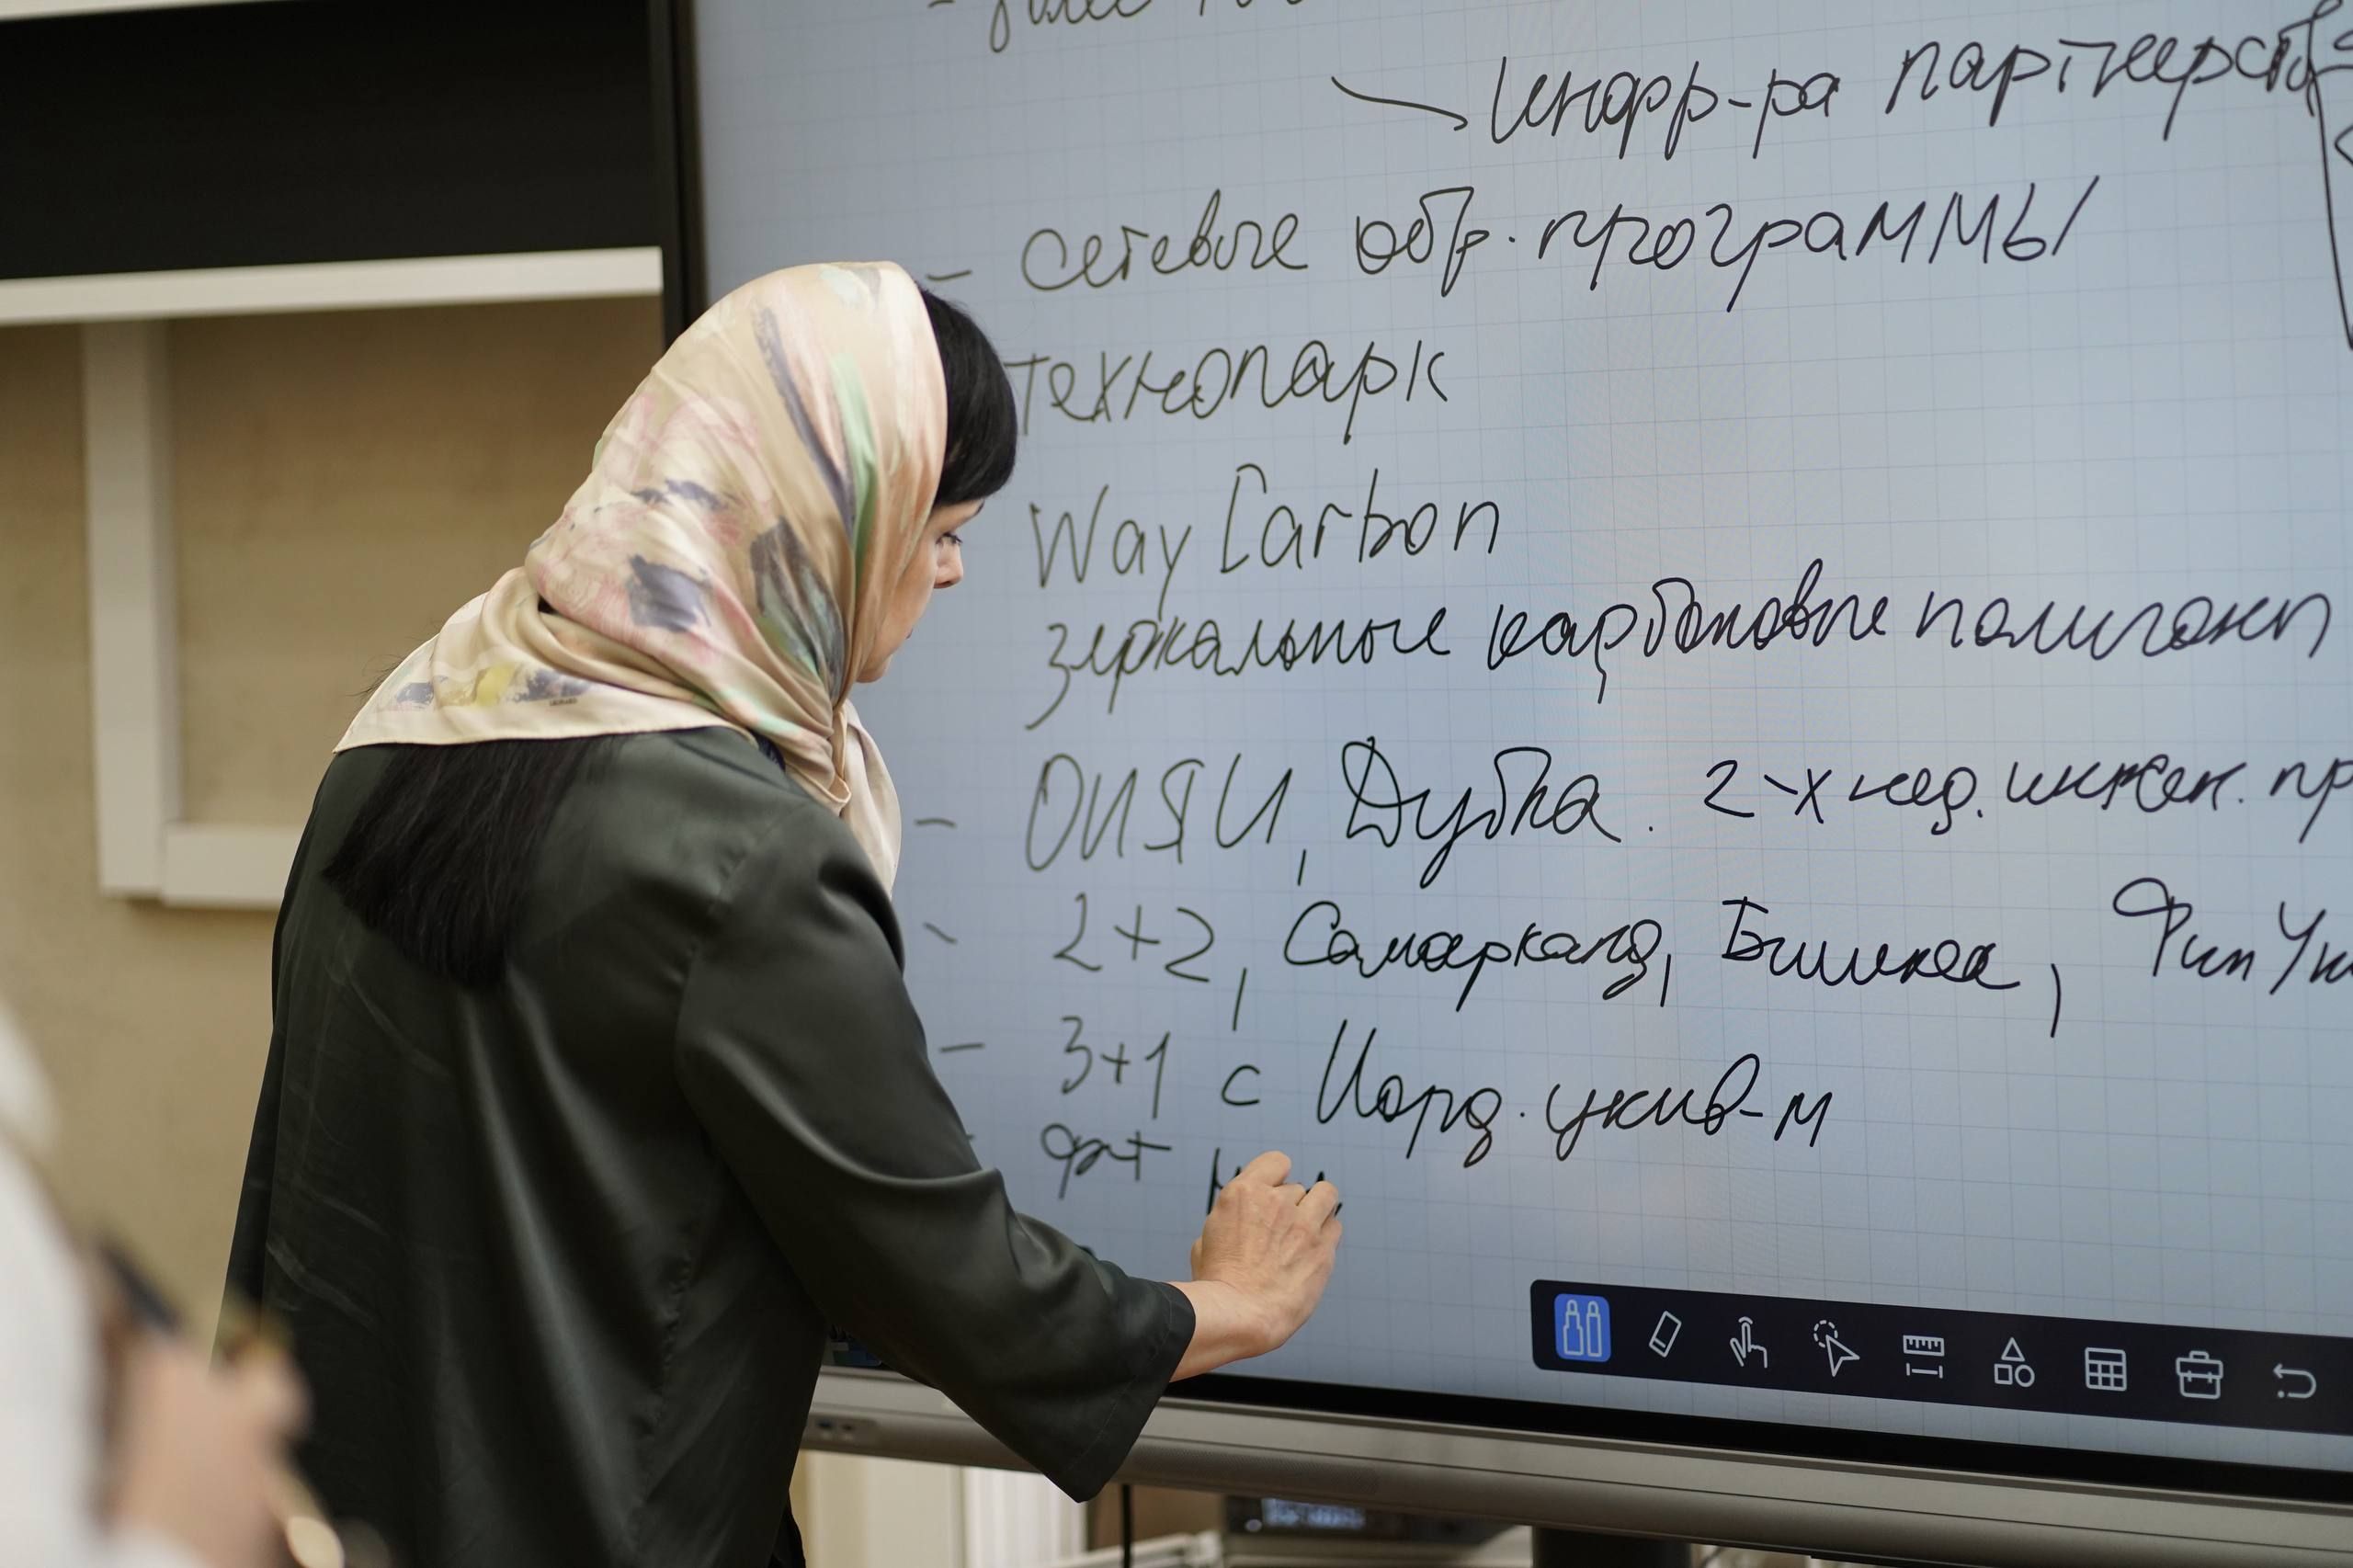 - более
Инфр-ра партнерств
- сетевые обр. программы
технопарк
Way Carbon
зеркальные карбоновые полигоны
- ОИЯИ, Дубна. 2-х нед. инжен. пр
- 2+2, Самарканд, Бишкек,
- 3+1 с Иорд. унив-м